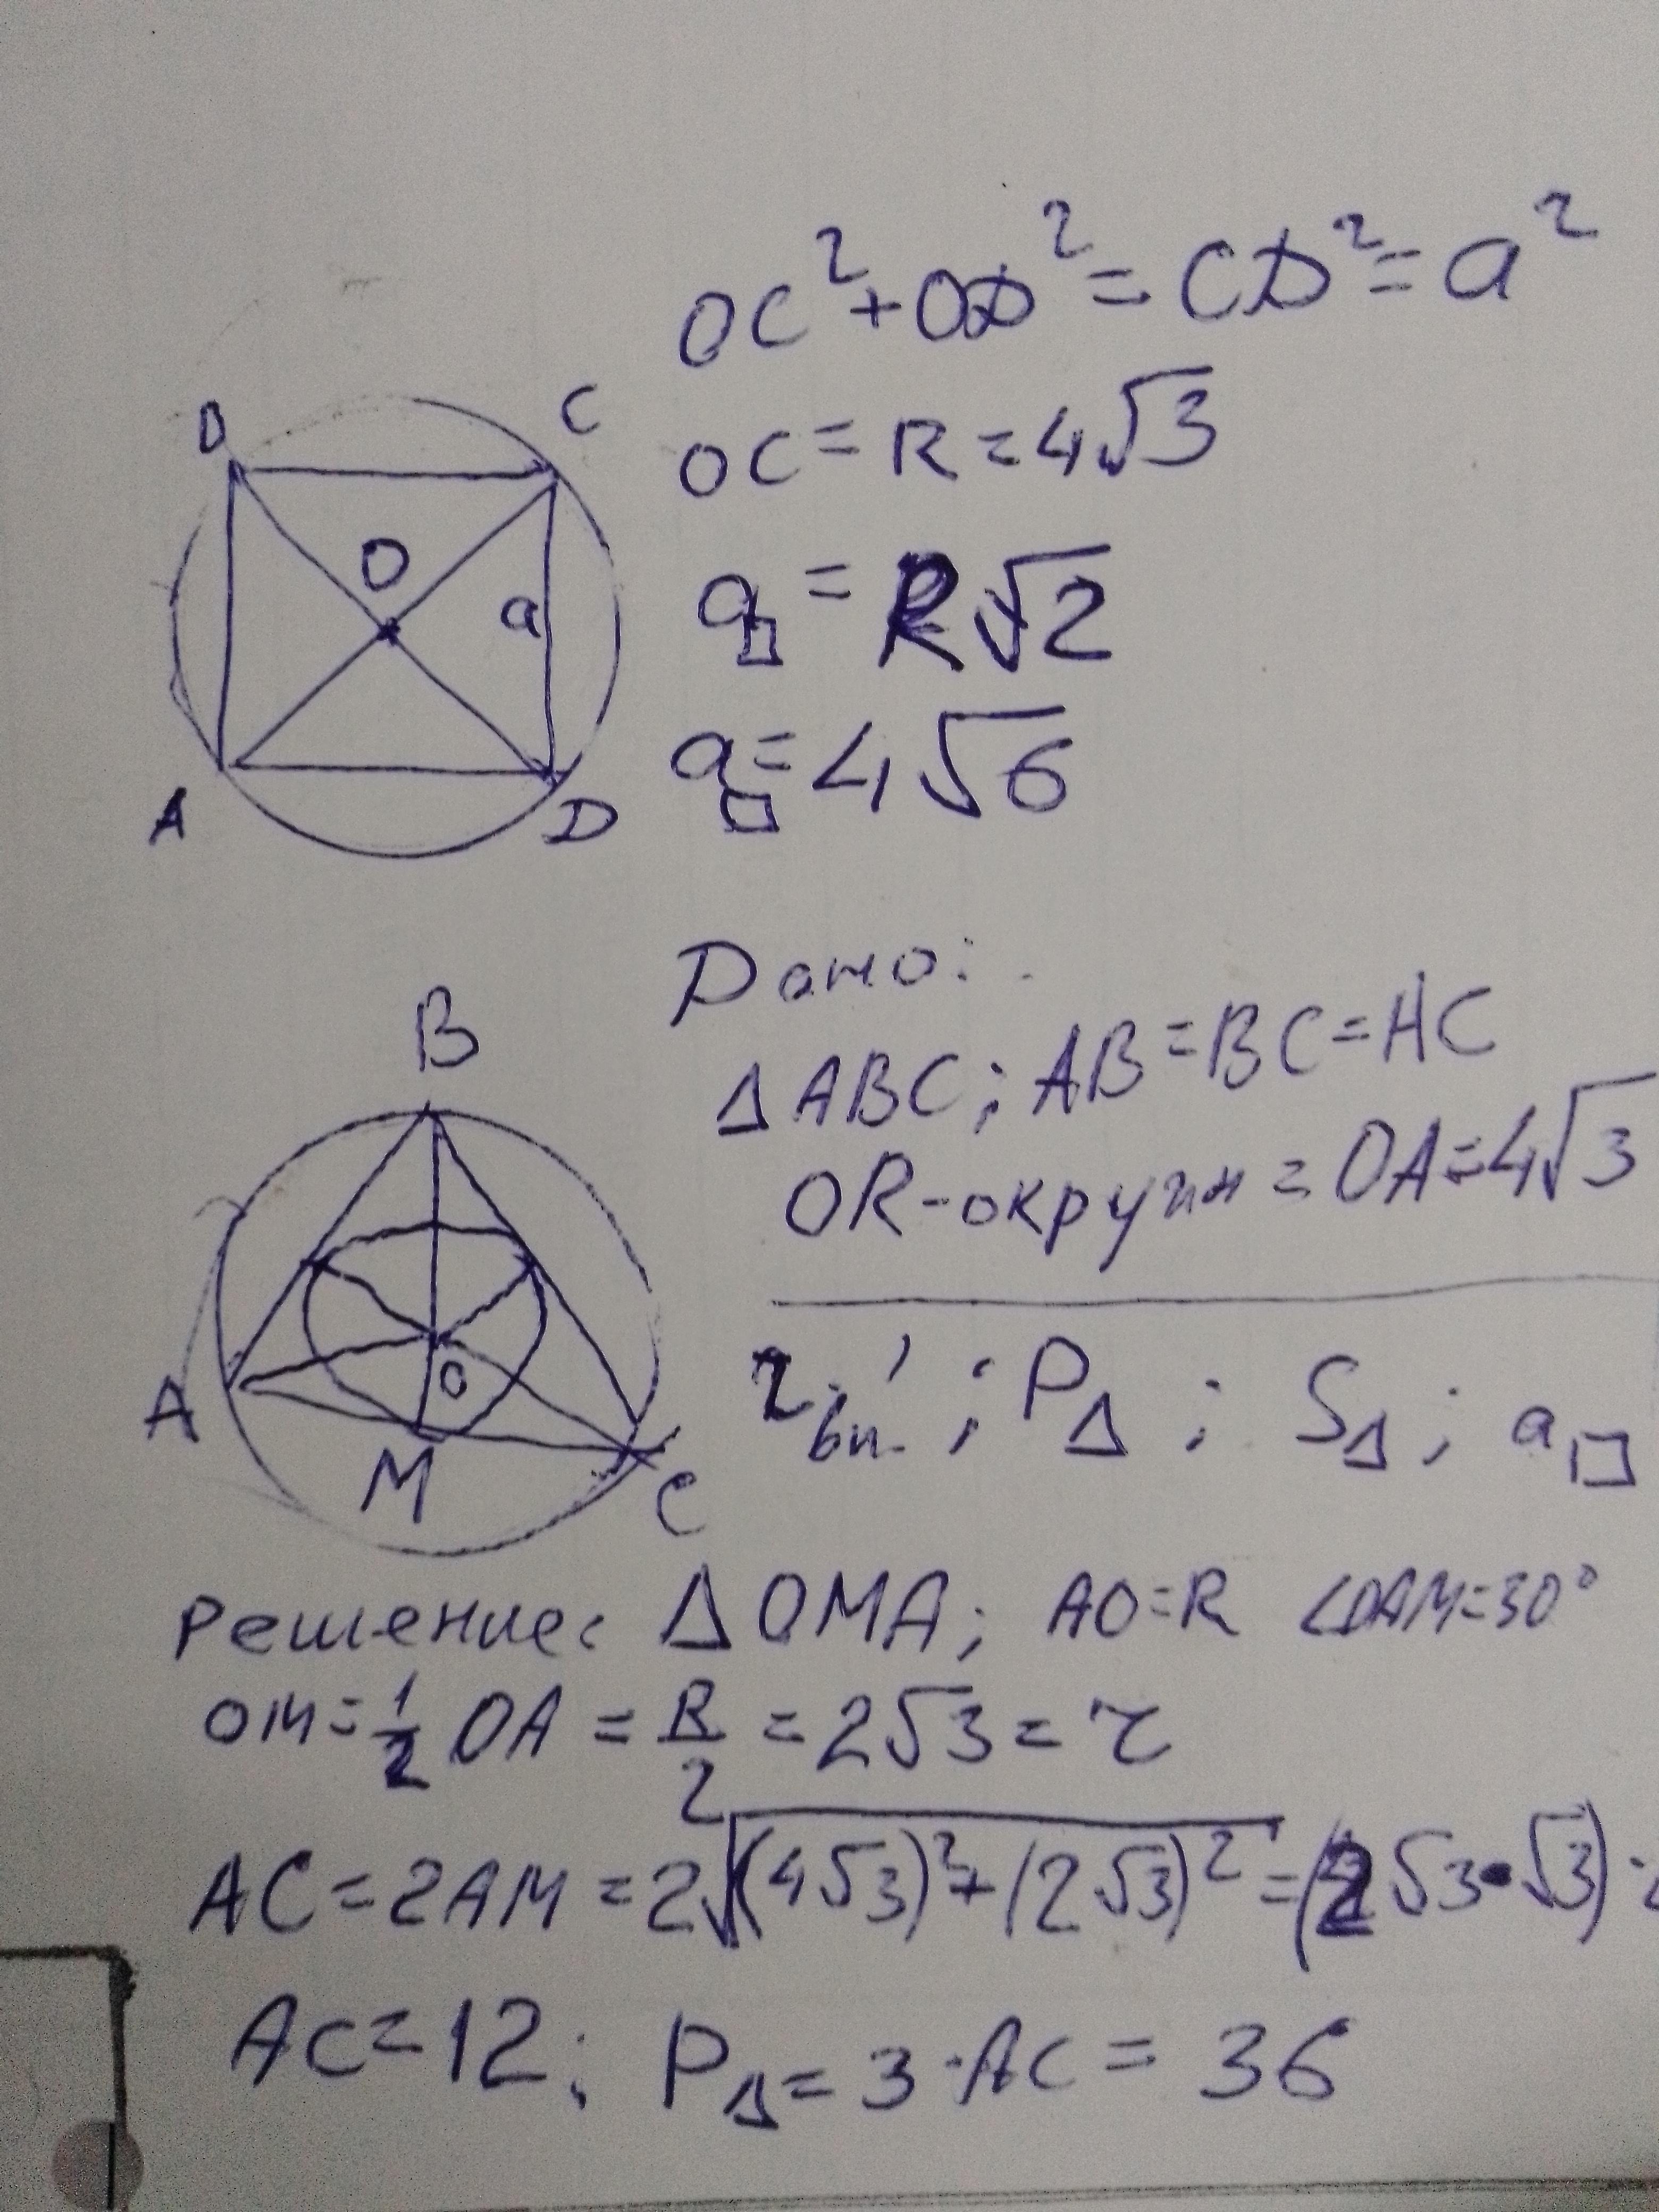 OC²+OD²=CD²=a²
B C
OC=R=4√3
O a
a□=R√2
a□=4√6
A D
Дано:
B
ΔABC; AB=BC=AC
OR-окружн=OA=4√3
rвп.; PΔ; SΔ; a□
A O
M C
Решение: ΔOMA; AO=R ∠OAM=30°
OM=1/2 OA=R/2=2√3=r
AC=2AM=2√(4√3)²+(2√3)²=(2√3•√3)·2
AC=12; PΔ=3·AC=36